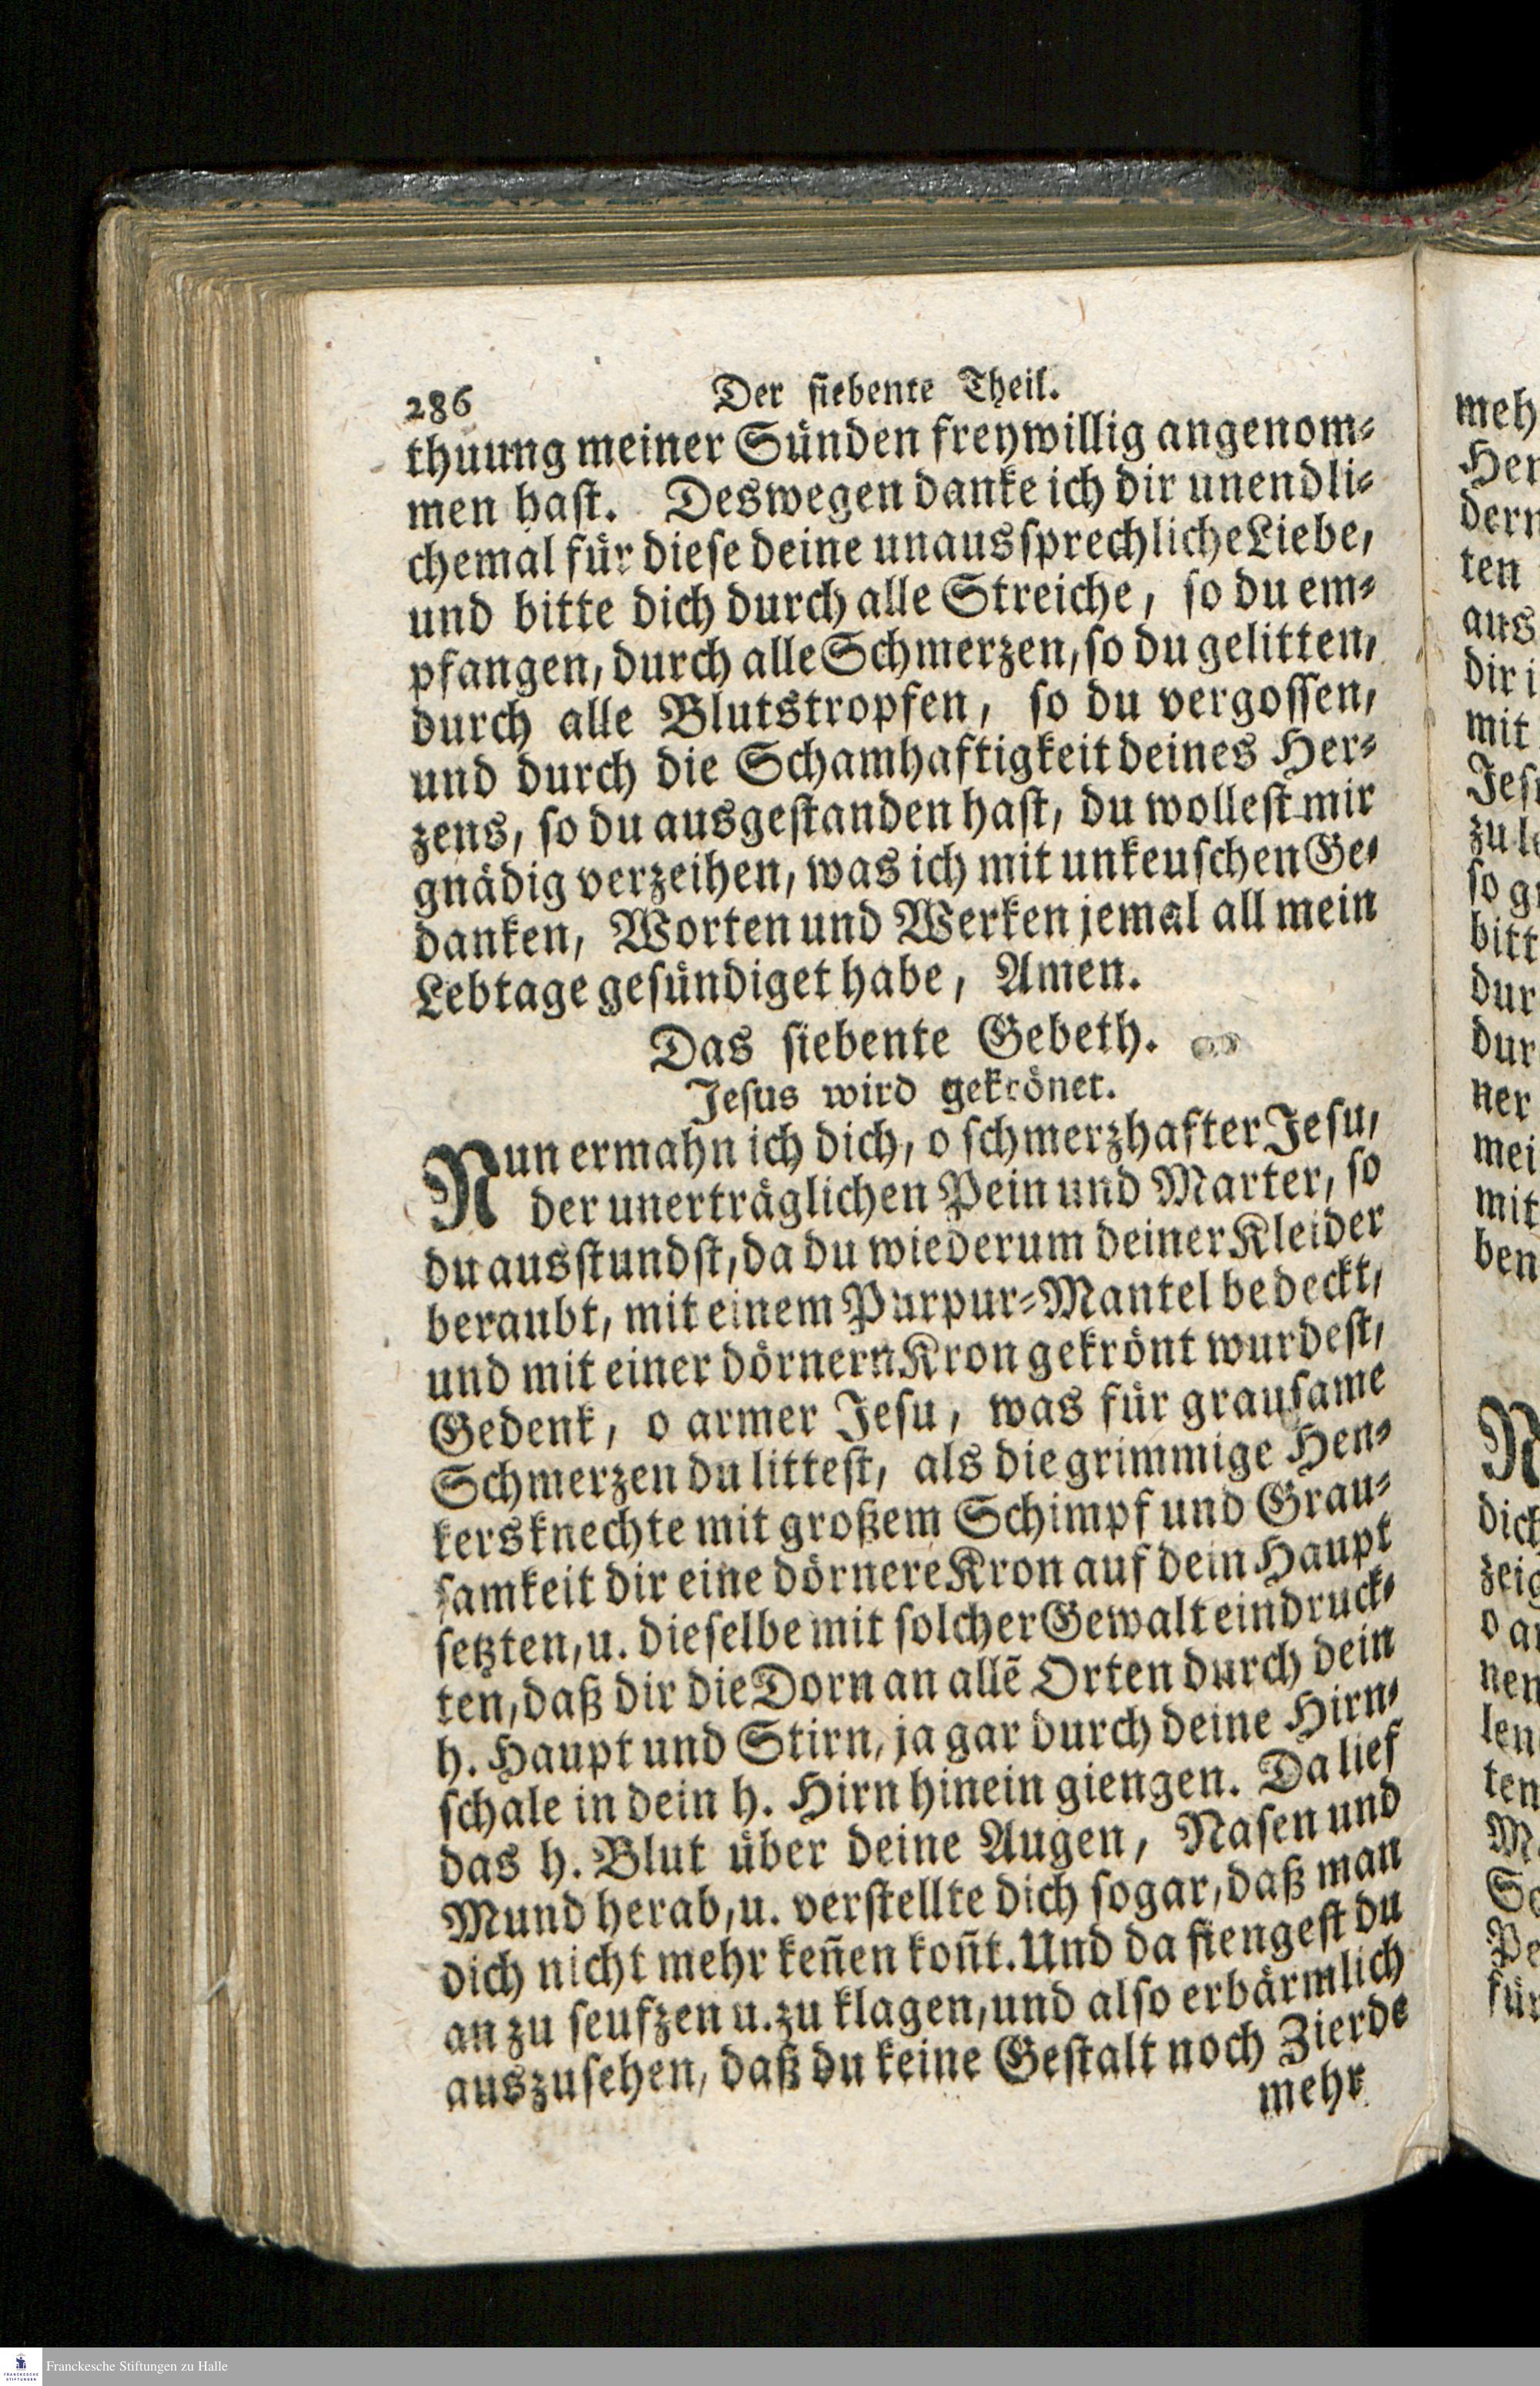 286 Der siebente Theil.
thuung meiner Sünden freywillig angenom-
men hast. Deswegen danke ich dir unendli-
chemal für diese deine unaussprechliche Liebe,
und bitte dich durch alle Streiche, so du em-
pfangen, durch alle Schmerzen, so du gelitten,
durch alle Blutstropfen, so du vergossen,
und durch die Schamhaftigkeit deines Her-
zens, so du ausgestanden hast, du wollest mir
gnädig verzeihen, was ich mit unkeuschen Ge-
danken, Worten und Werken jemal all mein
Lebtage gesündiget habe, Amen.
Das siebente Gebeth.
Jesus wird gekrönet.
Nun ermahn ich dich, o schmerzhafter Jesu,
der unerträglichen Pein und Marter, so
du ausstundst, da du wiederum deiner Kleider
beraubt, mit einem Purpur-Mantel bedeckt,
und mit einer dörnern Kron gekrönt wurdest,
Gedenk, o armer Jesu, was für grausame
Schmerzen du littest, als die grimmige Hen-
kersknechte mit großem Schimpf und Grau-
samkeit dir eine dörnere Kron auf dein Haupt
setzten, u. dieselbe mit solcher Gewalt eindruck-
ten, daß dir die Dorn an allē Orten durch dein
h. Haupt und Stirn, ja gar durch deine Hirn-
schale in dein h. Hirn hinein giengen. Da lief
das h. Blut über deine Augen, Nasen und
Mund herab, u. verstellte dich sogar, daß man
dich nicht mehr keñen koñt. Und da fiengest du
an zu seufzen u. zu klagen, und also erbärmlich
auszusehen, daß du keine Gestalt noch Zierde
mehr
meh
Hen
dern
ten
aus
dir i
mit
Jesu
zu le
so gr
bitt
dur
dur
ner
mei
mit
ben
N
dich
zeig
o ar
nen
len
ten
Pe
für
Franckesche Stiftungen zu Halle